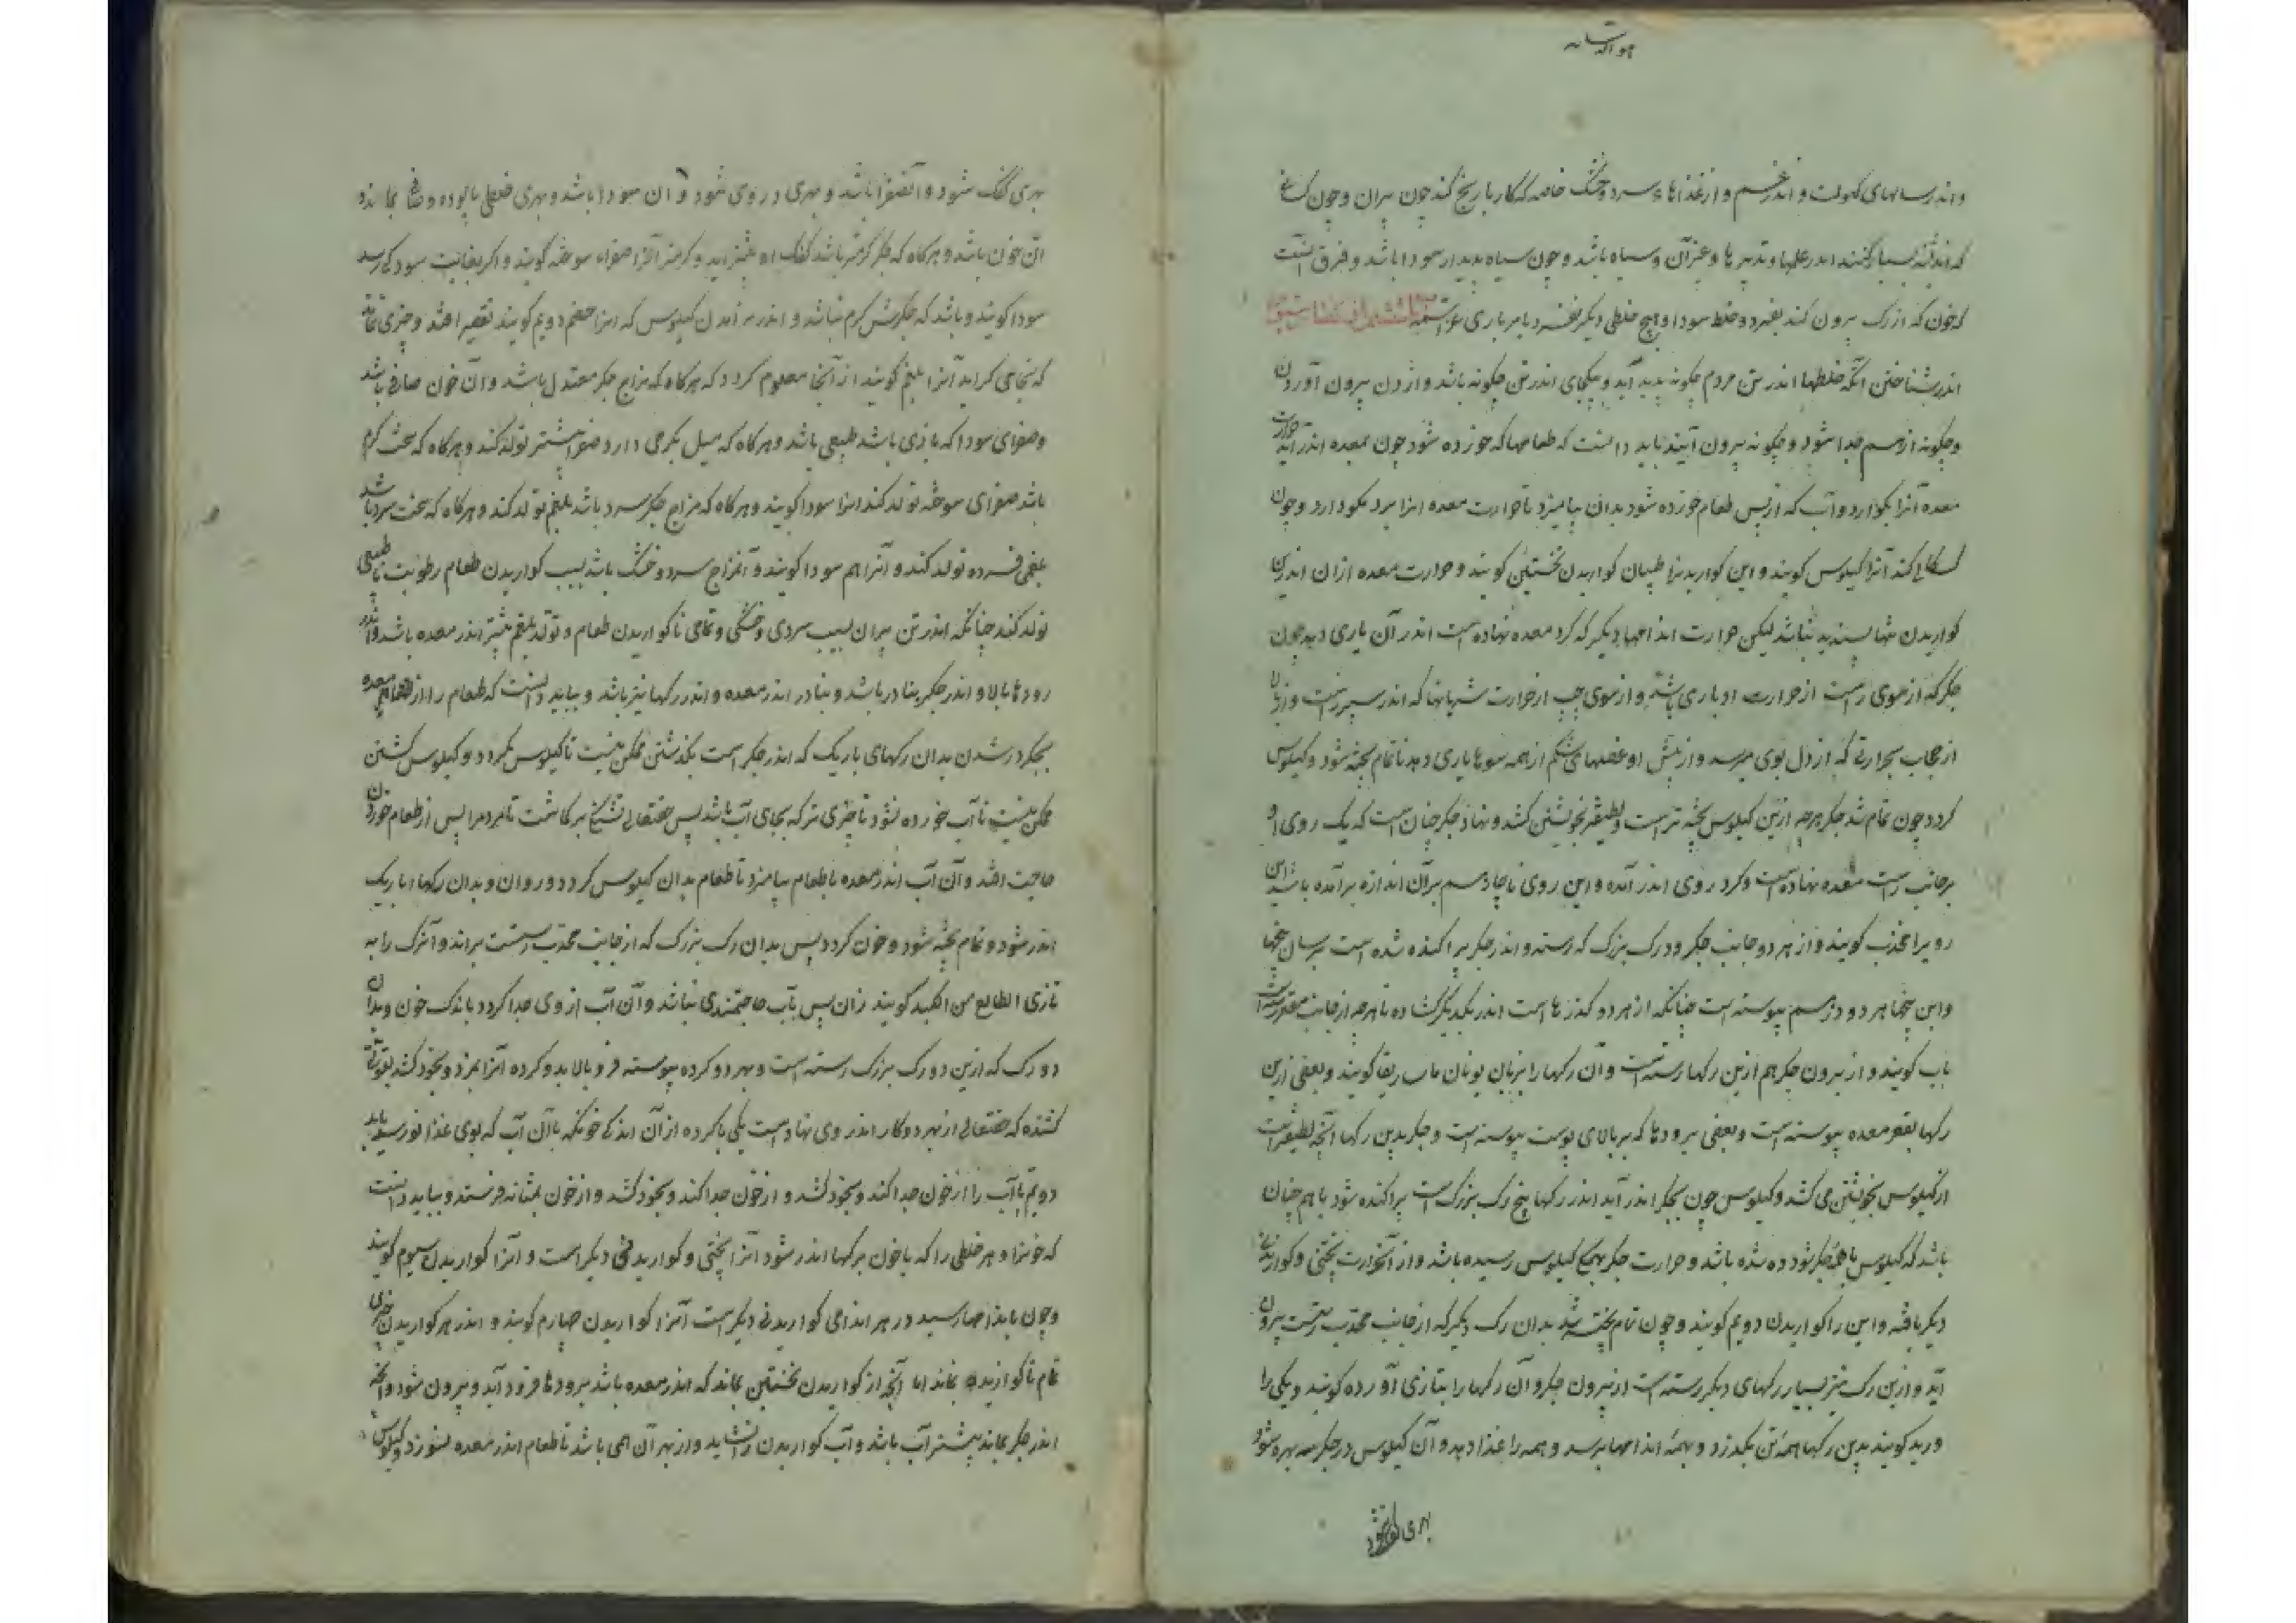 هو الله تعالی
و اندر سالهای کهولت و اندر غم و از غذاهاء سرد و خشک خاصه که کار با رنج کند چون پیران و چون کسانی
که اندیشه بسیار کنند اندر علمها و تدبیرها و غیر آن و سیاه باشد و چون سیاه پدید ار سودا باشد و فرق آنست
که خون که از رک بیرون کند بفسرد و خلط سودا و هیچ خلطی دیکر نفسرد بامر باری عز اسمه
اندر شناختن آنکه خلطها اندر تن مردم چکونه پدید آید و بکجای اندر تن چکونه باشد و از تن بیرون آوردن
و چکونه از هم جدا شود و چکونه بیرون آیند بباید دانست که طعامها که خورده شود چون بمعده اندر آید حرارت
معده آنرا بکوارد و آب که از پس طعام خورده شود بدان بیامیزد تا حرارت معده انرا بپزد بکوارد و چون
کشکاب کند آنرا کیلوس کویند و این کواریدنرا طبیبان کواریدن نخستین کویند و حرارت معده ازان اندرین
کواریدن تنها بسنده نباشد لیکن حرارت اندامها دیکر که کرد معده نهاده است اندر آن یاری دهد چون
جکر که از سوی راست از حرارت او یاری باشد و از سوی چپ از حرارت شریانها که اندر سپرزست و از بالا
از حجاب بحرارتی که از دل بوی میرسد و از پیش او عضلهای شکم از همه سوها یاری دهد تا تمام پخته شود و کیلوس
کردد چون تمام شد جکر هرچه ازین کیلوس پخته تر است و لطیفتر بخویشتن کشد و نهاد جکر چنان است که یک روی او
بر جانب راست معده نهاده است و کرد روی اندر آمده و این روی تا چار هم بر آن اندازه برآمده باشد این
رویرا محدب کویند و از هر دو جانب جکر دو رک بزرک که رسته و اندر جکر پراکنده شده است بر سان بیخها
و این بیخها هر دو درهم پیوسته است چنانکه از هر دو کذرها است اندر یکدیکر کشاده تا هرچه از جانب مقعر رسته است
باب کویند و از بیرون جکر هم ازین رکها رسته است و آن رکها را بزبان یونان ماساریقا کویند و بعضی ازین
رکها بقعر معده پیوسته است و بعضی برودها که بر بالای پوست پیوسته است و جکر بدین رکها آنچه لطیفتر است
از کیلوس بخویشتن می کشد و کیلوس چون بجکر اندر آید اندر رکها بیخ رک بزرک است پراکنده شود باهم چنان
باشد که کیلوس با همه جکر شوده شده باشد و حرارت جکر بهمه کیلوس رسیده باشد و از آنحرارت پختنی و کواریدنی
دیکر یافته و این را کواریدن دویم کویند و چون تمام پخته شد بدان رک دیکر که از جانب محدب رسته است بیرون
آید و ازین رک نیز بسیار رکهای دیکر رسته است از بیرون جکر و آن رکها را بتازی آورده کویند و یکی را
ورید کویند بدین رکها همه تن بکذرد و بهمه اندامها برسد و همه را غذا دهد و آن کیلوس در جکر سه بهره شود
بهری کفک شود
بهری کفک شود و آنصفرا باشد و بهری دردی شود و آن سودا باشد و بهری خلطی پالوده و صافی بماند و
آن خون باشد و هرکاه که جکر کرمتر باشد کفک او بیشتر آید و کرمتر آنرا صفراء سوخته کویند و اکر بغایت سودکی رسد
سودا کویند و باشد که جکر بس کرم نباشد و اندر برآمدن کیلوس که انرا هضم دویم کویند تقصیر افتد و چیزی خام ماند
که بخامی کراید آنرا بلغم کویند از آنجا معلوم کردد که هرکاه که مزاج جکر معتدل باشد و آن خون صافی باشد
و صفرای سودا که با وی باشد طبیعی باشد و هرکاه که میل بکرمی دارد صفرا بیشتر تولد کند و هرکاه که سخت کرم
باشد صفرای سوخته تولد کند انرا سودا کویند و هرکاه که مزاج جکر سرد باشد بلغم تولد کند و هرکاه که سخت سرد باشد
بلغمی فسرده تولد کند و آنرا هم سودا کویند و آنمزاج سرد و خشک باشد بسبب کواریدن طعام رطوبت نا طبیعی
تولد کند چنانکه اندر تن پیران بسبب سردی و خشکی و تمامی نا کواریدن طعام و تولد بلغم بیشتر اندر معده باشد و اندر
رودها بالا و اندر جکر بنادر باشد و بنادر اندر معده و اندر رکها نیز باشد و بباید دانست که طعام را از معده
بجکر در شدن بدان رکهای باریک که اندر جکر است بکذشتن ممکن نیست تا کیلوس نکردد و کیلوس کشتن
ممکن نیست تا آب خورده نشود تا چیزی تر که بجای آب باشد پس حقتعالی تشنکی برکماشت تا مردم را پس از طعام خوردن
حاجت افتد و آن آب اندر معده با طعام بیامیزد تا طعام بدان کیلوس کردد و روان و بدان رکهاء باریک
اندر شود و تمام پخته شود و خون کردد پس بدان رک بزرک که از جانب محدب رسته است براند و آنرک را به
تازی الطالع من الکبد کویند زان پس بآب حاجتمندی نباشد و آن آب از وی جدا کردد با اندک خون و بدان
دو رک که ازین دو رک بزرک رسته است و بهر دو کرده پیوسته فرو پالاید و کرده آنرا بمزد و بخود کشد بقوتی
کشنده که حقتعالی از بهر دو کار اندر وی نهاده است یکی تا کرده از آن اندکی خونکه با آن آب که بوی غذا نو رسد بیابد
دویم تا آب را از خون جدا کند و بخود کشد و از خون جدا کند و بخود کشد و از خون بمثانه فرستد و بباید دانست
که خونرا و هر خلطی را که با خون برکها اندر شود آنرا پختنی و کواریدنی دیکر است و آنرا کواریدن سیوم کویند
و چون باندامها رسید در هر اندامی کواریدنی دیکر است آنرا کواریدن چهارم کویند و اندر هر کواریدن چیزی
تمام نا کواریده بماند اما آنچه از کواریدن نخستین بماند که اندر معده باشد برودها فرود آید و بیرون شود و آنچه
اندر جکر بماند بیشتر آب باشد و آب کواریدن را نشاید و از بهر آن همی باشد تا طعام اندر معده نسوزد و کیلوس